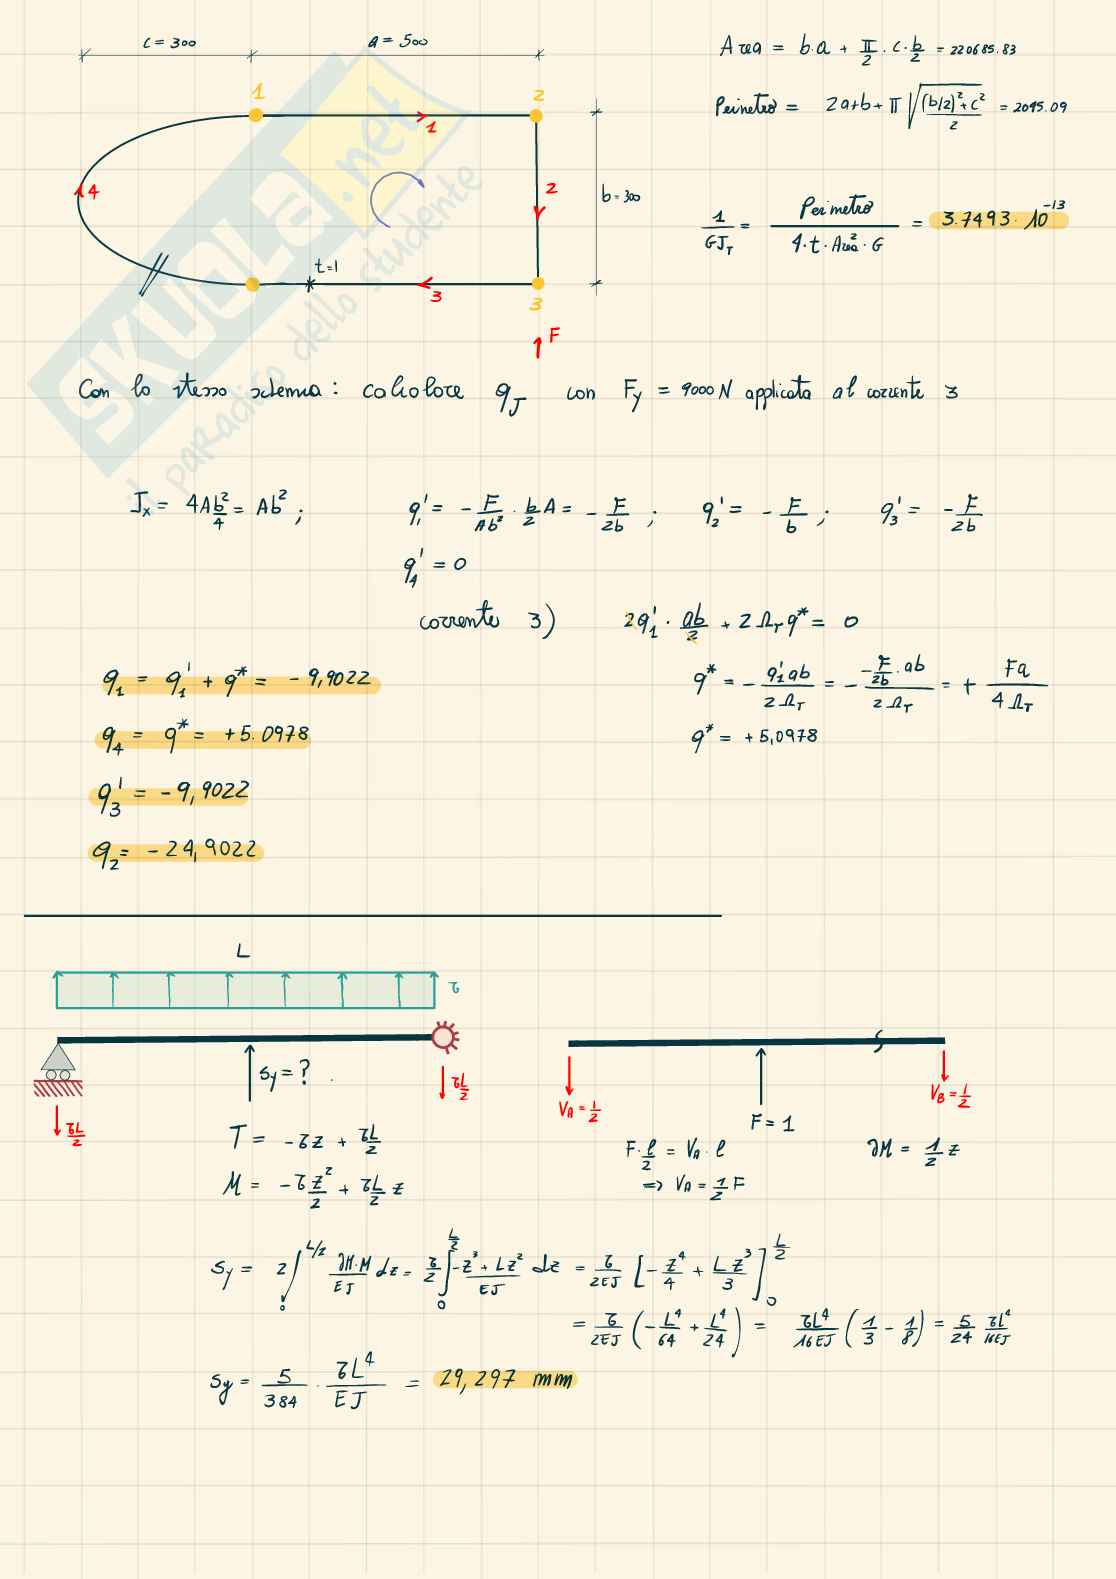 c = 300
a = 500
1
2
1
4
2
b = 300
t=1
3
3
F
Area = b·a + π/2 · c · b/2 = 220685.83
Perimetro = 2a+b+π √(((b/2)²+c²)/2) = 2095.09
1/GJ_T = Perimetro / (4·t·Area²·G) = 3.7493·10⁻¹³
SKUOLA.net
il paradiso dello studente
Con lo stesso schema: calcolare q_J con F_y = 9000 N applicata al corrente 3
J_x = 4A b²/4 = Ab² ; q₁' = - F/Ab² · b/2 A = - F/2b ; q₂' = - F/b ; q₃' = - F/2b
q₄' = 0
corrente 3) 2q₁' · ab/2 + 2Ω_T q* = 0
q₁ = q₁' + q* = -9,9022
q* = - q₁'ab/2Ω_T = - (-F/2b · ab)/2Ω_T = + Fa/4Ω_T
q₄ = q* = +5.0978
q* = +5,0978
q₃' = -9,9022
q₂ = -24,9022
L
τ
s_y = ?
τL/2
τL/2
V_A = 1/2
F = 1
V_B = 1/2
T = -τz + τL/2
M = -τ z²/2 + τL/2 z
F · l/2 = V_A · l
=> V_A = 1/2 F
∂M = 1/2 z
s_y = 2 ∫₀^{L/2} ∂M·M/EJ dz = τ/2 ∫₀^{L/2} (-z³ + Lz²)/EJ dz = τ/2EJ [ - z⁴/4 + L z³/3 ]₀^{L/2}
= τ/2EJ ( - L⁴/64 + L⁴/24 ) = τL⁴/16EJ ( 1/3 - 1/8 ) = 5/24 τL⁴/16EJ
s_y = 5/384 · τL⁴/EJ = 29,297 mm